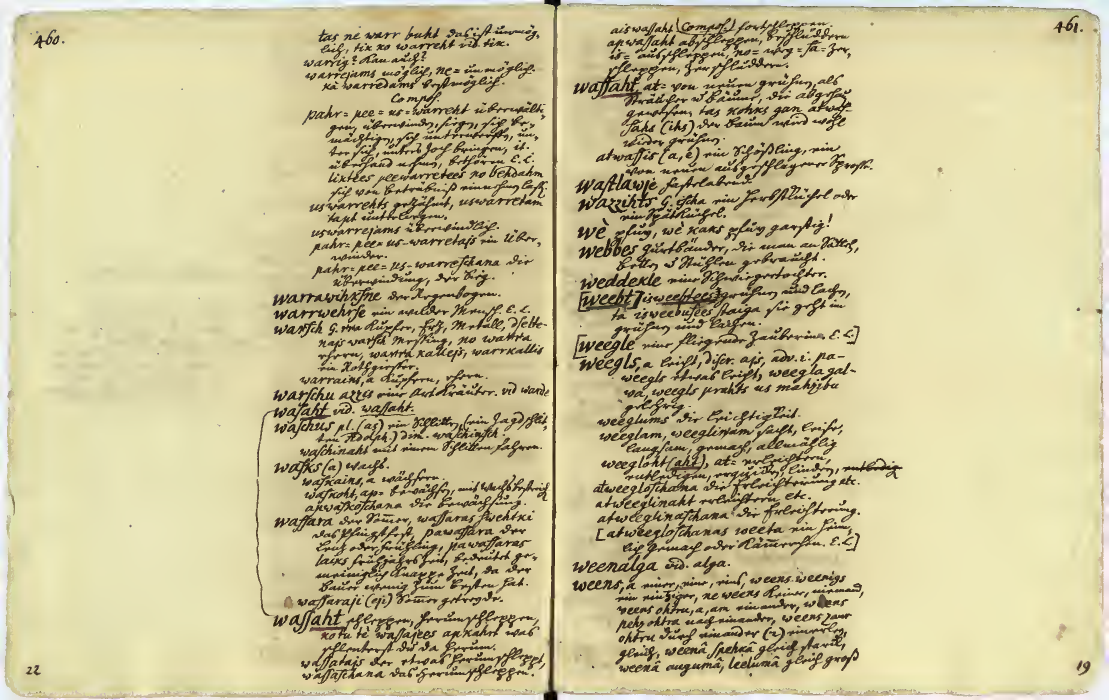 460.
tas ne warr buht das ist unmög-
lich, tik ko warreht vid. tik.
warrig? Kan auch?
warrejams möglich, ne= unmöglich.
ka warredams bestmöglich.
Compos.
pahr= pee= us=warreht überwälti-
gen, überwinden, siegen, sich be-
mächtigen, sich unterwerffen, un-
ter sich, unters Joch bringen, it.
überhand nehmen, bethören E. L.
liktees peewarretees no behdahm
sich von Betrübniß einnehmen laßen.
uswarrehts gezähmt, uswarretam
tapt unterliegen.
uswarrejams überwindlich.
pahr= pee= us-warretajs ein Über-
winder.
pahr= pee= us-warreschana die
Überwindung, der Sieg.
warrawihksne der Regenbogen.
warrwehrse ein wilder Mensch. E. L.
warsch G. rra Kupfer, Ertz, Metall, dselte-
najs warsch Messing, no warra
ehern, warra kallejs, warrkallis
ein Rothgießer.
warrains, a Kupfern, ehern.
warschu azzis eine Art Kräuter. vid. warde
wasaht vid. wassaht.
waschus pl. (as) ein Schlitten, (ein Jagdschlit-
ten Adolph.) dim. waschinsch.
waschinaht mit einem Schlitten fahren.
wasks (a) wachs.
waskains, a wächsern.
waskoht, ap= bewächsen, mit Wachs bestreich
apwaskoschana die bewächsung.
wassara der Som̄er, wassaras swehtki
das Pfingstfest, pawassara der
Lentz oder Frühling, pawassaras
laiks frühjahrs Zeit, bedeutet ge-
meiniglich knappe Zeit, da der
Bauer wenig zum besten hat.
wassaraji (eji) Som̄er getreyde.
wassaht schleppen, herumschleppen,
ko tu tê wassajees apkahrt was
schlenterst du da herum.
wassatajs der etwas herumschleppt,
wassaschana das herumschleppen.
22
461.
aiswassaht (Compos.) fortschleppen.
apwassaht abschleppen, beschluddern
is= ausschleppen, no= weg= sa= zer-
schleppen, zerschluddern.
wassaht, at= von neuen grühnen, als
Sträucher u Bäume, die abgehau
gewesen, tas kohks gan atwas-
sahs (ihs) der Baum wird wohl
wieder grühnen.
atwassis (a, e) ein Schößling, ein
von neuen ausgeschlagener Sprosse.
wastlawje fastelabend.
wazzihts G. ischa ein Herbstküchel oder
ein Spätküchel.
wê pfuy, wê kaks pfuy garstig!
webbes Gurtbänder, die man an Sätteln,
betten u Stühlen gebraucht.
weddekle eine Schwiegertochter.
[weebt] isweebtees grühnen und lachen,
ta isweebusees staiga sie geht im
grühnen und lachen.
[weegle eine fliegende Zauberinne E. L.]
weegls, a leicht, discr. ajs, adv. i. pa-
weegls etwas leicht, weegla gal-
wa, weegls prahts us mahzibu
gelehrig.
weeglums die Leichtigkeit.
weeglam, weeglinam sacht, leise,
langsam, gemach, allmählig
weegloht (aht), at= erleichtern,
entledigen, erquicken, lindern, entledig
atweegloschana die Erleichterung etc.
atweeglinaht erleichtern etc.
atweeglinaschana die Erleichterung.
[atweegloschanas weeta ein heim-
lich Gemach oder Käm̄erchen. E. L.]
weenalga vid. alga.
weens, a einer, eine, eins, weens weenigs
ein eintziger, ne weens keiner, niemand,
weens ohtru, a, am einander, weens
pehz ohtra nach einander, weens zaur
ohtru durch einander (2) einerley,
gleich, weenâ spehkâ gleich starck,
weenâ augumâ, leelumâ gleich groß
19